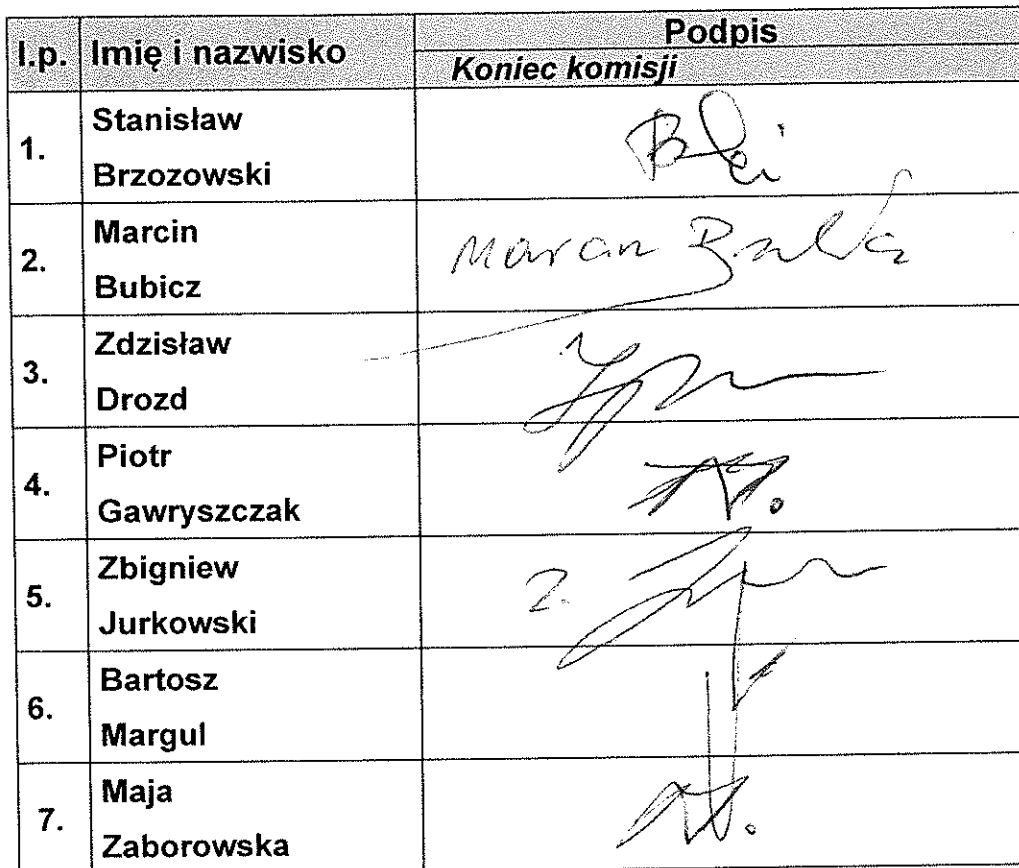 l.p. Imię i nazwisko Podpis
Koniec komisji
1. Stanisław
Brzozowski
2. Marcin
Bubicz
Marcin
3. Zdzisław
Drozd
4. Piotr
Gawryszczak
5. Zbigniew
Jurkowski
Z.
6. Bartosz
Margul
7. Maja
Zaborowska